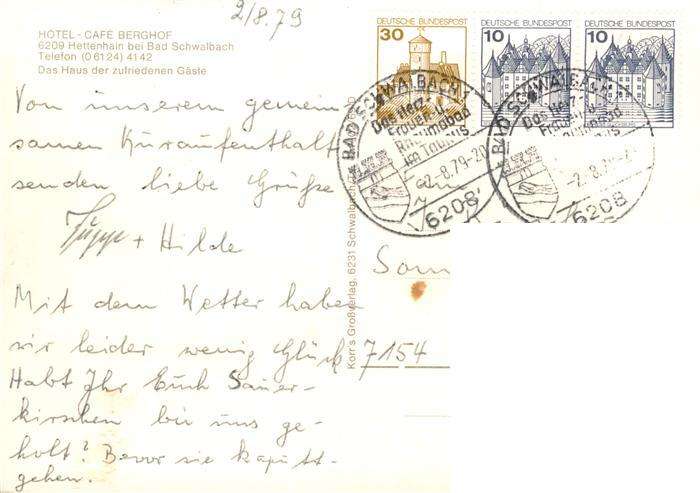 2/8.79
HOTEL - CAFÉ BERGHOF
6209 Hettenhain bei Bad Schwalbach
Telefon (0 61 24) 41 42
Das Haus der zufriedenen Gäste
Von unserem gemein
samen Kuraufenthalt
senden liebe Grüße
+ Hilde
Mit dem Wetter haben
wir leider wenig Glück
Habt Ihr Euch Sauer-
kirschen bei uns ge-
holt? Bevor sie kaputt-
gehen.
Korr's Großverlag, 6231 Schwalbach
DEUTSCHE BUNDESPOST
30
DEUTSCHE BUNDESPOST
10
DEUTSCHE BUNDESPOST
10
BAD SCHWALBACH 1
Das Herz-
Frauen-u.
Rheumabad
im Taunus
-2.-8.79-20
6208
BAD SCHWALBACH
Das Herz-
Frauen-u.
Rheumabad
im Taunus
-2.-8.79
6208
Som
7154